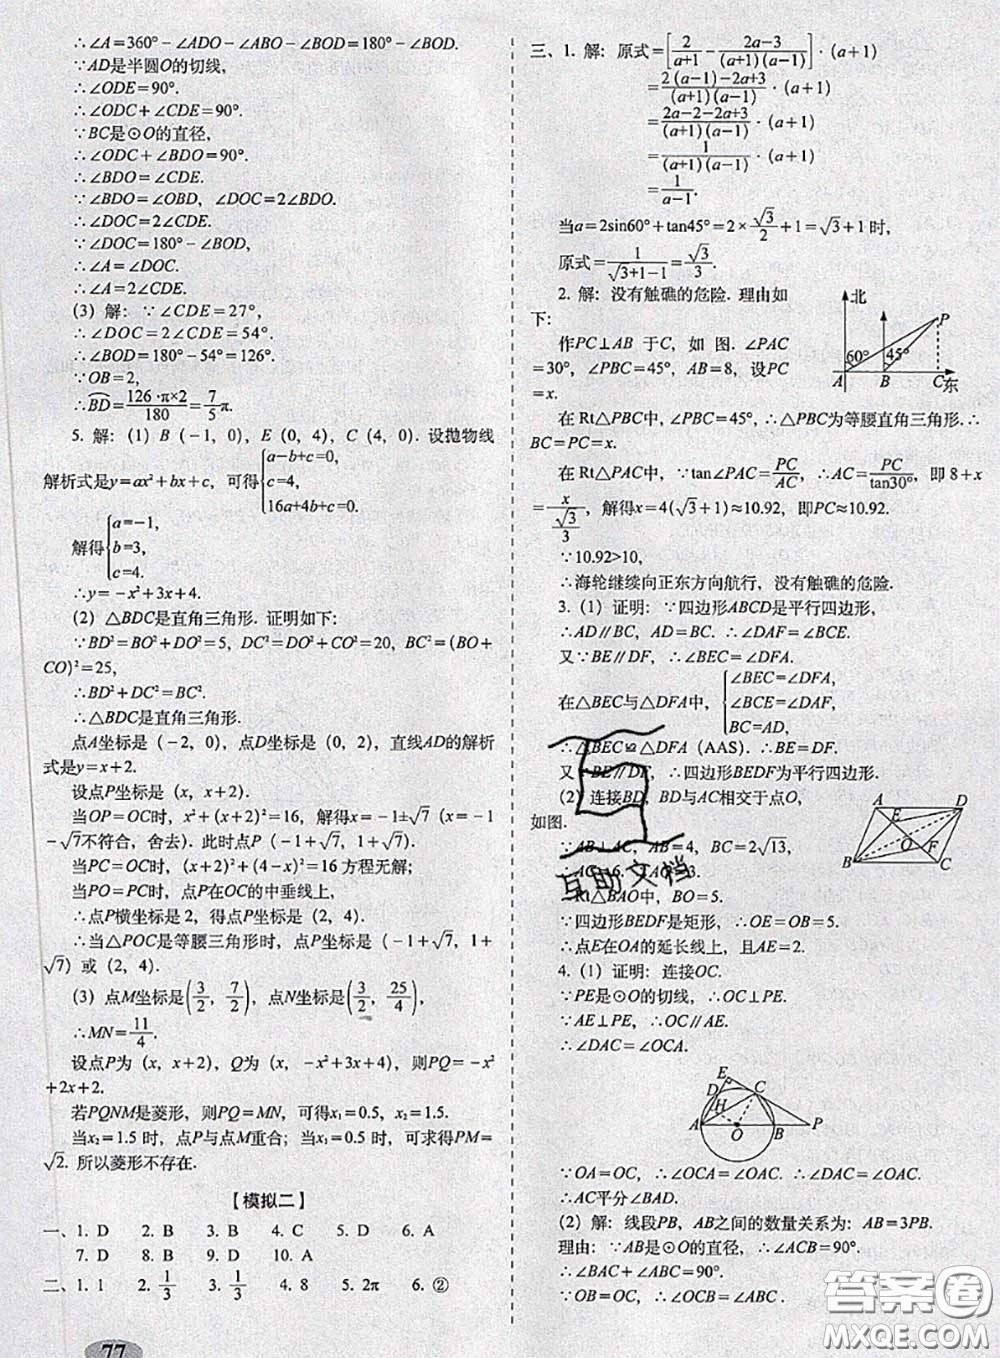 ∴∠A=360°-∠ADO-∠ABO-∠BOD=180°-∠BOD.
∵AD是半圆O的切线,
∴∠ODE=90°.
∴∠ODC+∠CDE=90°.
∵BC是⊙O的直径,
∴∠ODC+∠BDO=90°.
∴∠BDO=∠CDE.
∵∠BDO=∠OBD, ∠DOC=2∠BDO.
∴∠DOC=2∠CDE.
∵∠DOC=180°-∠BOD,
∴∠A=∠DOC.
∴∠A=2∠CDE.
(3) 解: ∵∠CDE=27°,
∴∠DOC=2∠CDE=54°.
∴∠BOD=180°-54°=126°.
∵OB=2,
∴BD=126·π×2/180=7/5π.
5. 解: (1) B (-1, 0), E (0, 4), C (4, 0). 设抛物线
解析式是y=ax²+bx+c, 可得{a-b+c=0, c=4, 16a+4b+c=0.
解得{a=-1, b=3, c=4.
∴y=-x²+3x+4.
(2) △BDC是直角三角形. 证明如下:
∵BD²=BO²+DO²=5, DC²=DO²+CO²=20, BC²=(BO+
CO)²=25,
∴BD²+DC²=BC².
∴△BDC是直角三角形.
点A坐标是 (-2, 0), 点D坐标是 (0, 2), 直线AD的解析
式是y=x+2.
设点P坐标是 (x, x+2).
当OP=OC时, x²+(x+2)²=16, 解得x=-1±√7 (x=-1
-√7不符合, 舍去). 此时点P (-1+√7, 1+√7).
当PC=OC时, (x+2)²+(4-x)²=16 方程无解;
当PO=PC时, 点P在OC的中垂线上,
∴点P横坐标是 2, 得点P坐标是 (2, 4).
∴当△POC是等腰三角形时, 点P坐标是 (-1+√7, 1+
√7) 或 (2, 4).
(3) 点M坐标是(3/2, 7/2), 点N坐标是(3/2, 25/4),
∴MN=11/4.
设点P为 (x, x+2), Q为 (x, -x²+3x+4), 则PQ=-x²
+2x+2.
若PQNM是菱形, 则PQ=MN, 可得x₁=0.5, x₂=1.5.
当x₂=1.5 时, 点P与点M重合; 当x₁=0.5 时, 可求得PM=
√2. 所以菱形不存在.
【模拟二】
一、1. D 2. B 3. B 4. C 5. D 6. A
7. D 8. B 9. D 10. A
二、1. 1 2. 1/3 3. 1/3 4. 8 5. 2π 6. ②
77
三、1. 解: 原式=[2/(a+1)-(2a-3)/(a+1)(a-1)]·(a+1)
=(2(a-1)-2a+3)/(a+1)(a-1)·(a+1)
=(2a-2-2a+3)/(a+1)(a-1)·(a+1)
=1/(a+1)(a-1)·(a+1)
=1/(a-1).
当a=2sin60°+tan45°=2×√3/2+1=√3+1 时,
原式=1/(√3+1-1)=√3/3.
2. 解: 没有触礁的危险. 理由如
下:
作PC⊥AB 于C, 如图. ∠PAC
=30°, ∠PBC=45°, AB=8, 设PC
=x.
北 P 60° 45° A B C 东
在 Rt△PBC中, ∠PBC=45°, ∴△PBC为等腰直角三角形. ∴
BC=PC=x.
在 Rt△PAC中, ∵tan∠PAC=PC/AC, ∴AC=PC/tan30°, 即 8+x
=x/(√3/3), 解得x=4(√3+1)≈10.92, 即PC≈10.92.
∵10.92>10,
∴海轮继续向正东方向航行, 没有触礁的危险.
3. (1) 证明: ∵四边形ABCD是平行四边形,
∴AD∥BC, AD=BC. ∴∠DAF=∠BCE.
又∵BE∥DF, ∴∠BEC=∠DFA.
在△BEC与△DFA中, {∠BEC=∠DFA, ∠BCE=∠DAF, BC=AD,
∴△BEC≌△DFA (AAS). ∴BE=DF.
又∵BE∥DF, ∴四边形BEDF为平行四边形.
(2) 连接BD, BD与AC相交于点O,
如图.
A D E O F B C
∵AB⊥AC, AB=4, BC=2√13,
∴AC=6. ∴AO=3.
Rt△BAO中, BO=5.
∵四边形BEDF是矩形, ∴OE=OB=5.
∴点E在OA的延长线上, 且AE=2.
互助文档
4. (1) 证明: 连接OC.
∵PE是⊙O的切线, ∴OC⊥PE.
∵AE⊥PE, ∴OC∥AE.
∴∠DAC=∠OCA.
E D C H A O B P
∵OA=OC, ∴∠OCA=∠OAC. ∴∠DAC=∠OAC.
∴AC平分∠BAD.
(2) 解: 线段PB, AB之间的数量关系为: AB=3PB.
理由: ∵AB是⊙O的直径, ∴∠ACB=90°.
∴∠BAC+∠ABC=90°.
∵OB=OC, ∴∠OCB=∠ABC.
答案圈
MXQE.COM